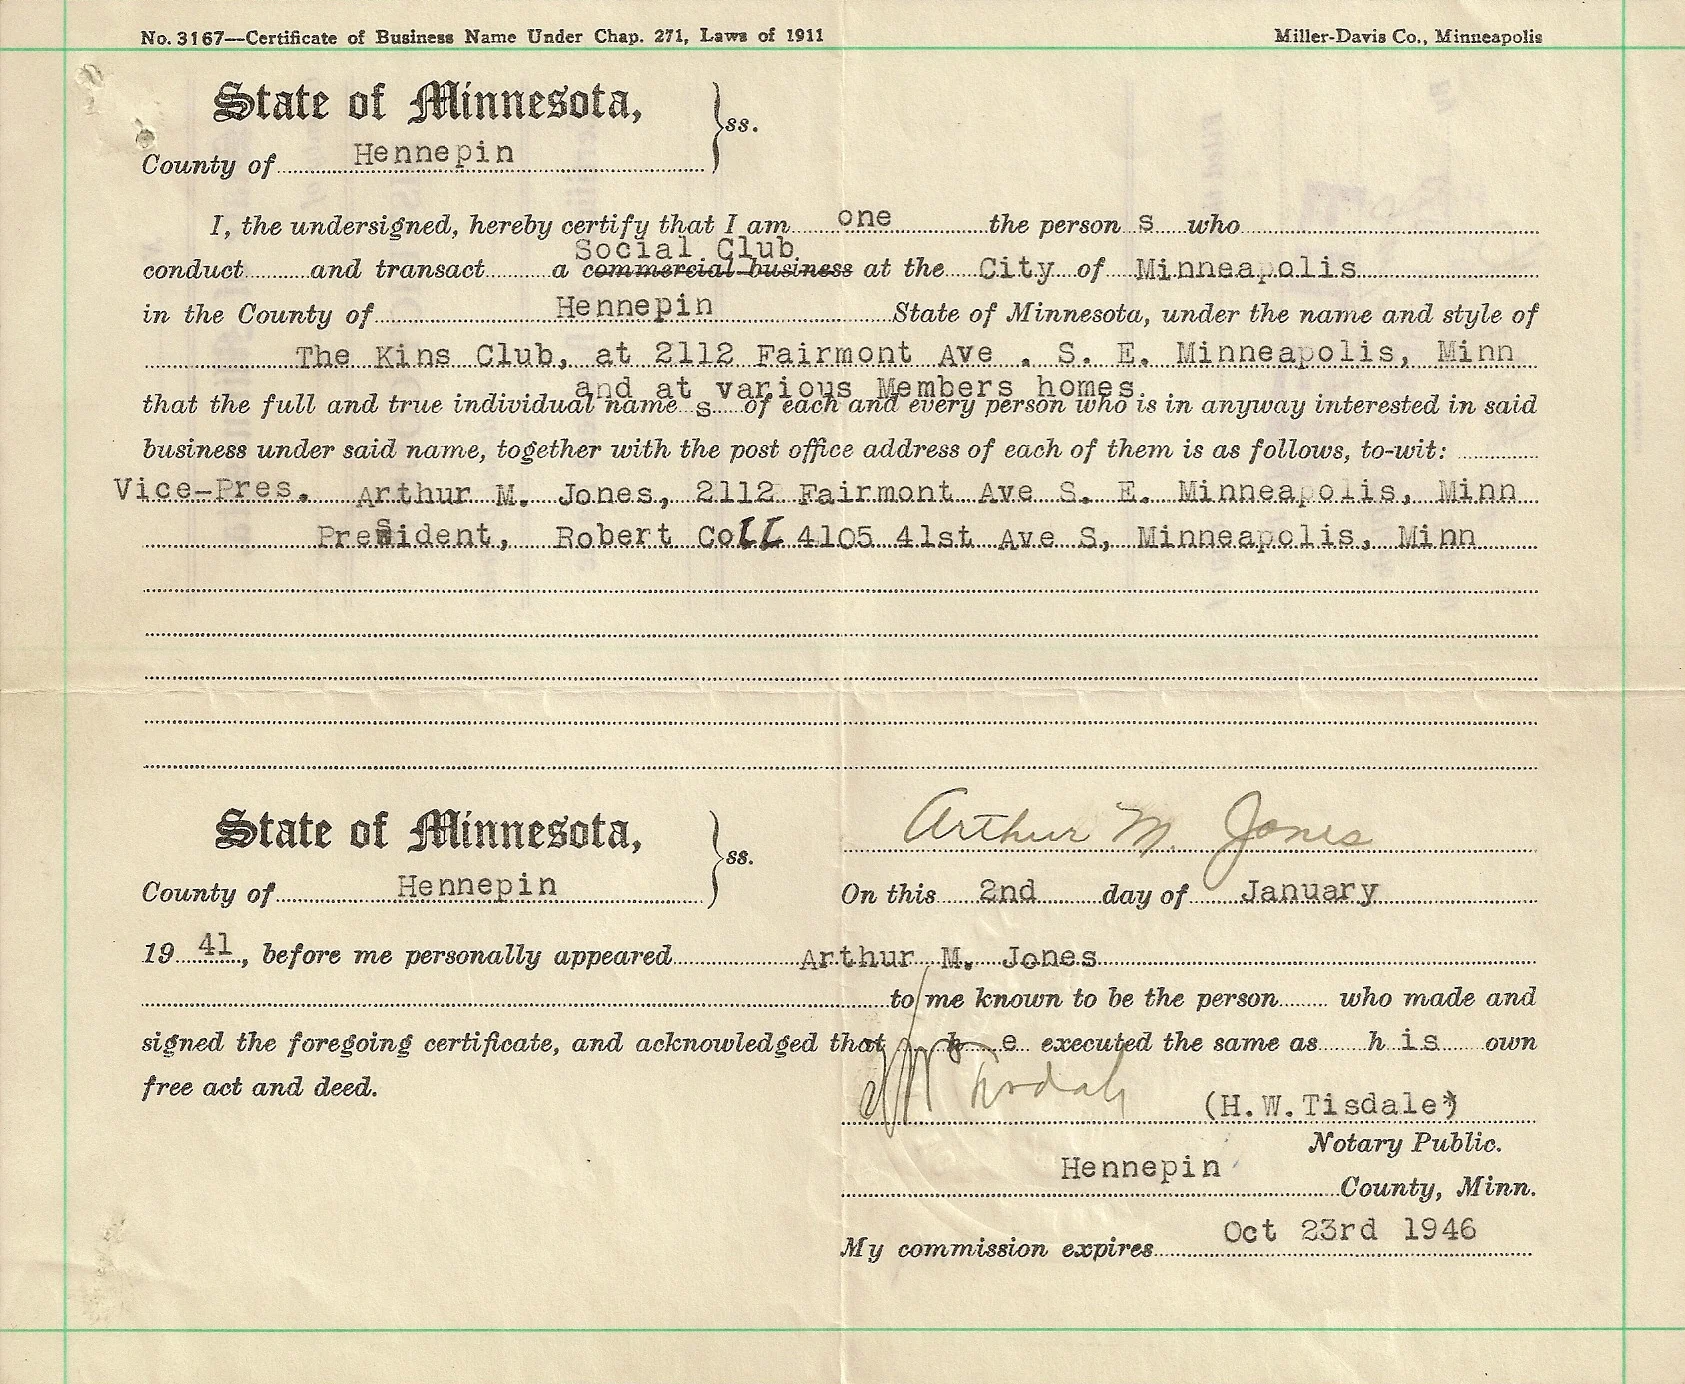 No. 3167—Certificate of Business Name Under Chap. 271, Laws of 1911 Miller-Davis Co., Minneapolis
State of Minnesota,
ss.
County of Hennepin
I, the undersigned, hereby certify that I am one the person s who
Social Club
conduct and transact a commercial business at the City of Minneapolis
in the County of Hennepin State of Minnesota, under the name and style of
The Kins Club, at 2112 Fairmont Ave . S. E. Minneapolis, Minn
and at various Members homes
that the full and true individual name s of each and every person who is in anyway interested in said
business under said name, together with the post office address of each of them is as follows, to-wit:
Vice-Pres. Arthur M. Jones, 2112 Fairmont Ave S. E. Minneapolis, Minn
President, Robert Coll 4105 41st Ave S, Minneapolis, Minn
State of Minnesota,
ss.
Arthur M. Jones
County of Hennepin
On this 2nd day of January
19 41, before me personally appeared Arthur M. Jones
to me known to be the person who made and
signed the foregoing certificate, and acknowledged that h e executed the same as h is own
free act and deed.
H W Tisdale (H.W.Tisdale)
Notary Public.
Hennepin
County, Minn.
My commission expires Oct 23rd 1946